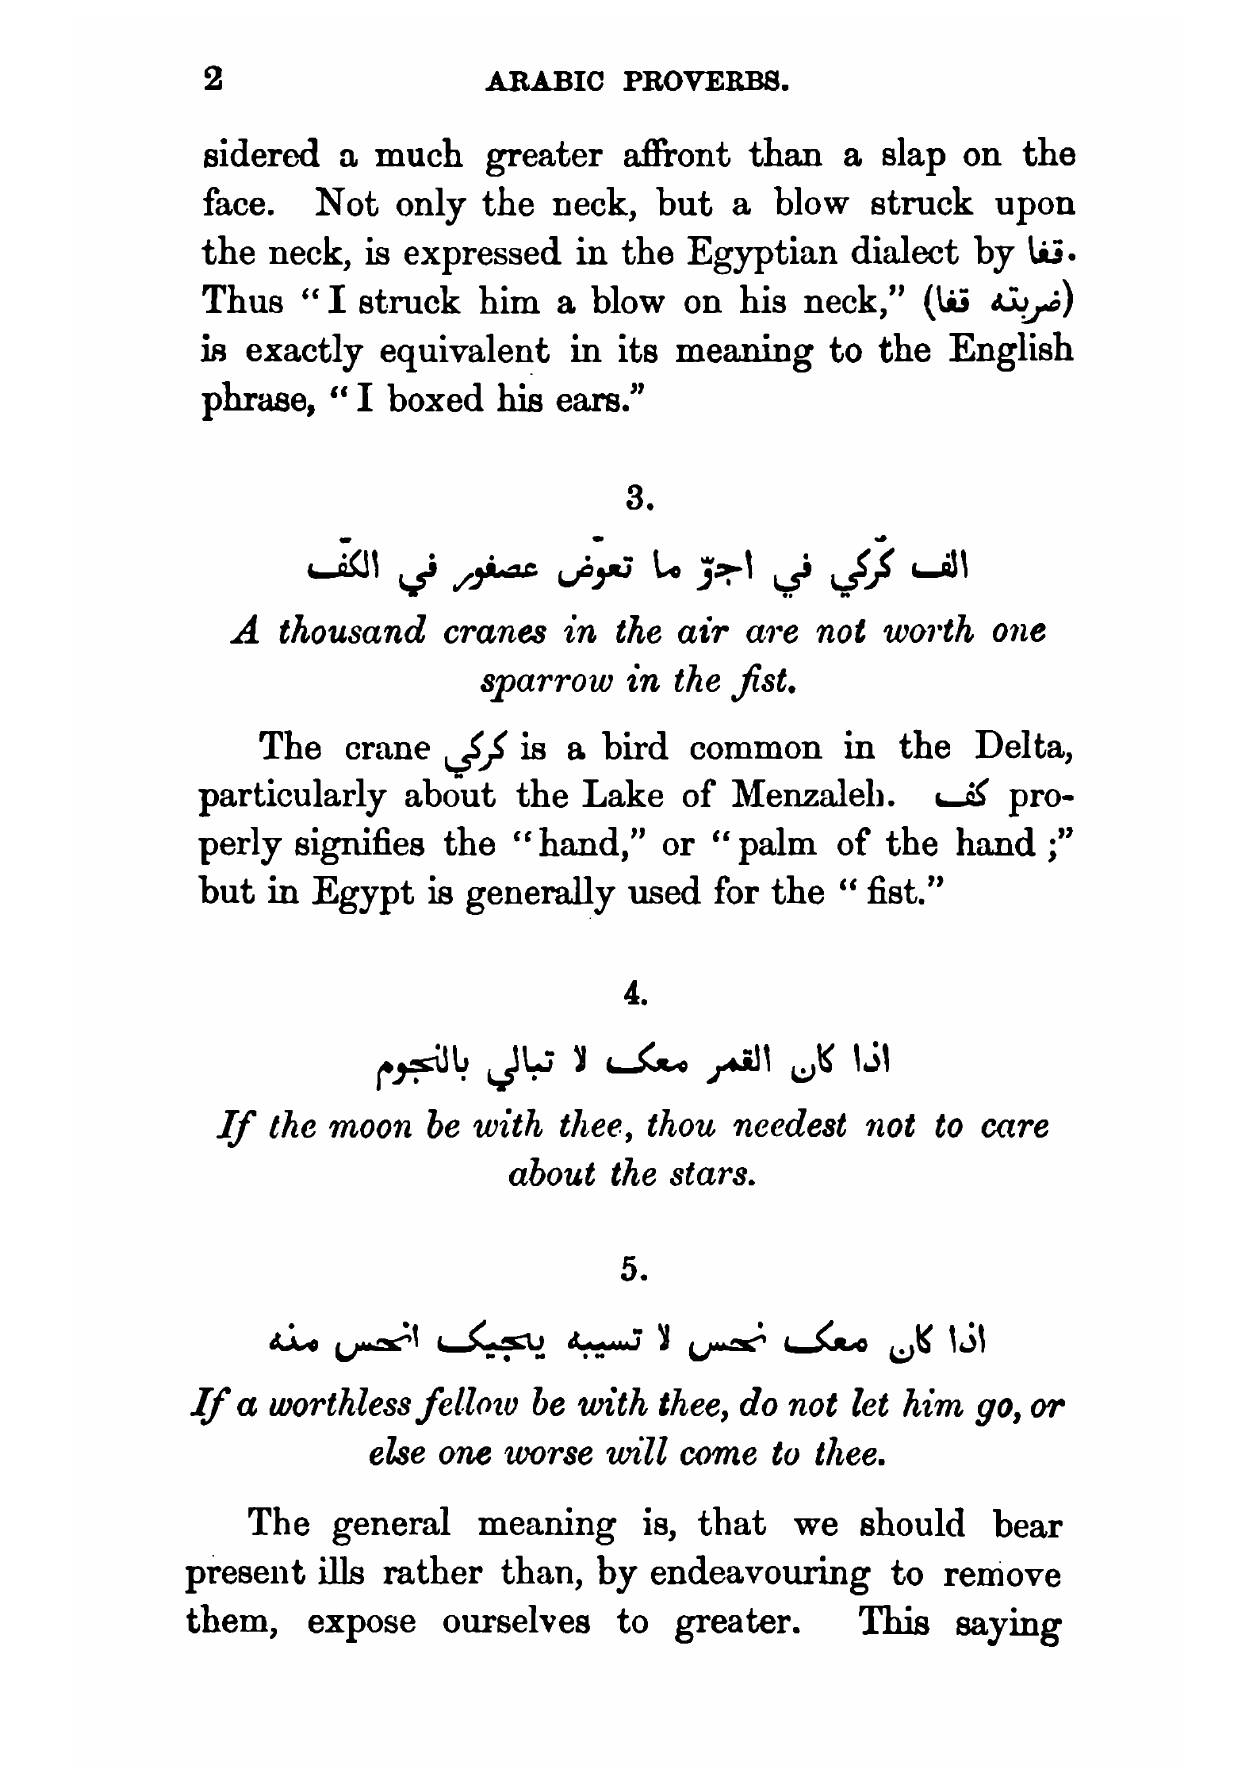 2 ARABIC PROVERBS.
sidered a much greater affront than a slap on the
face. Not only the neck, but a blow struck upon
the neck, is expressed in the Egyptian dialect by قفا.
Thus “I struck him a blow on his neck,” (ضربته قفا)
is exactly equivalent in its meaning to the English
phrase, “I boxed his ears.”
3.
الف كُركي في اجوّ ما تعوّض عصفور في الكفّ
A thousand cranes in the air are not worth one
sparrow in the fist.
The crane كُركي is a bird common in the Delta,
particularly about the Lake of Menzaleh. كف pro-
perly signifies the “hand,” or “palm of the hand;”
but in Egypt is generally used for the “fist.”
4.
اذا كان القمر معك لا تبالي بالنجوم
If the moon be with thee, thou needest not to care
about the stars.
5.
اذا كان معك نحس لا تسيبه يجيك انحس منه
If a worthless fellow be with thee, do not let him go, or
else one worse will come to thee.
The general meaning is, that we should bear
present ills rather than, by endeavouring to remove
them, expose ourselves to greater. This saying